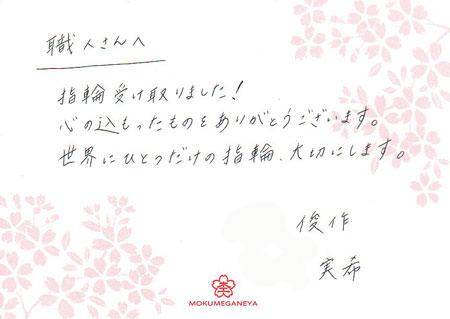 職人さんへ
指輪受け取りました！
心の込もったものをありがとうございます。
世界にひとつだけの指輪、大切にします。
俊作
実希
MOKUMEGANEYA